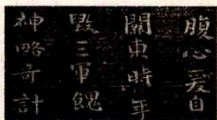 腹心爰自
關東時年
毀三軍餽
神略奇計